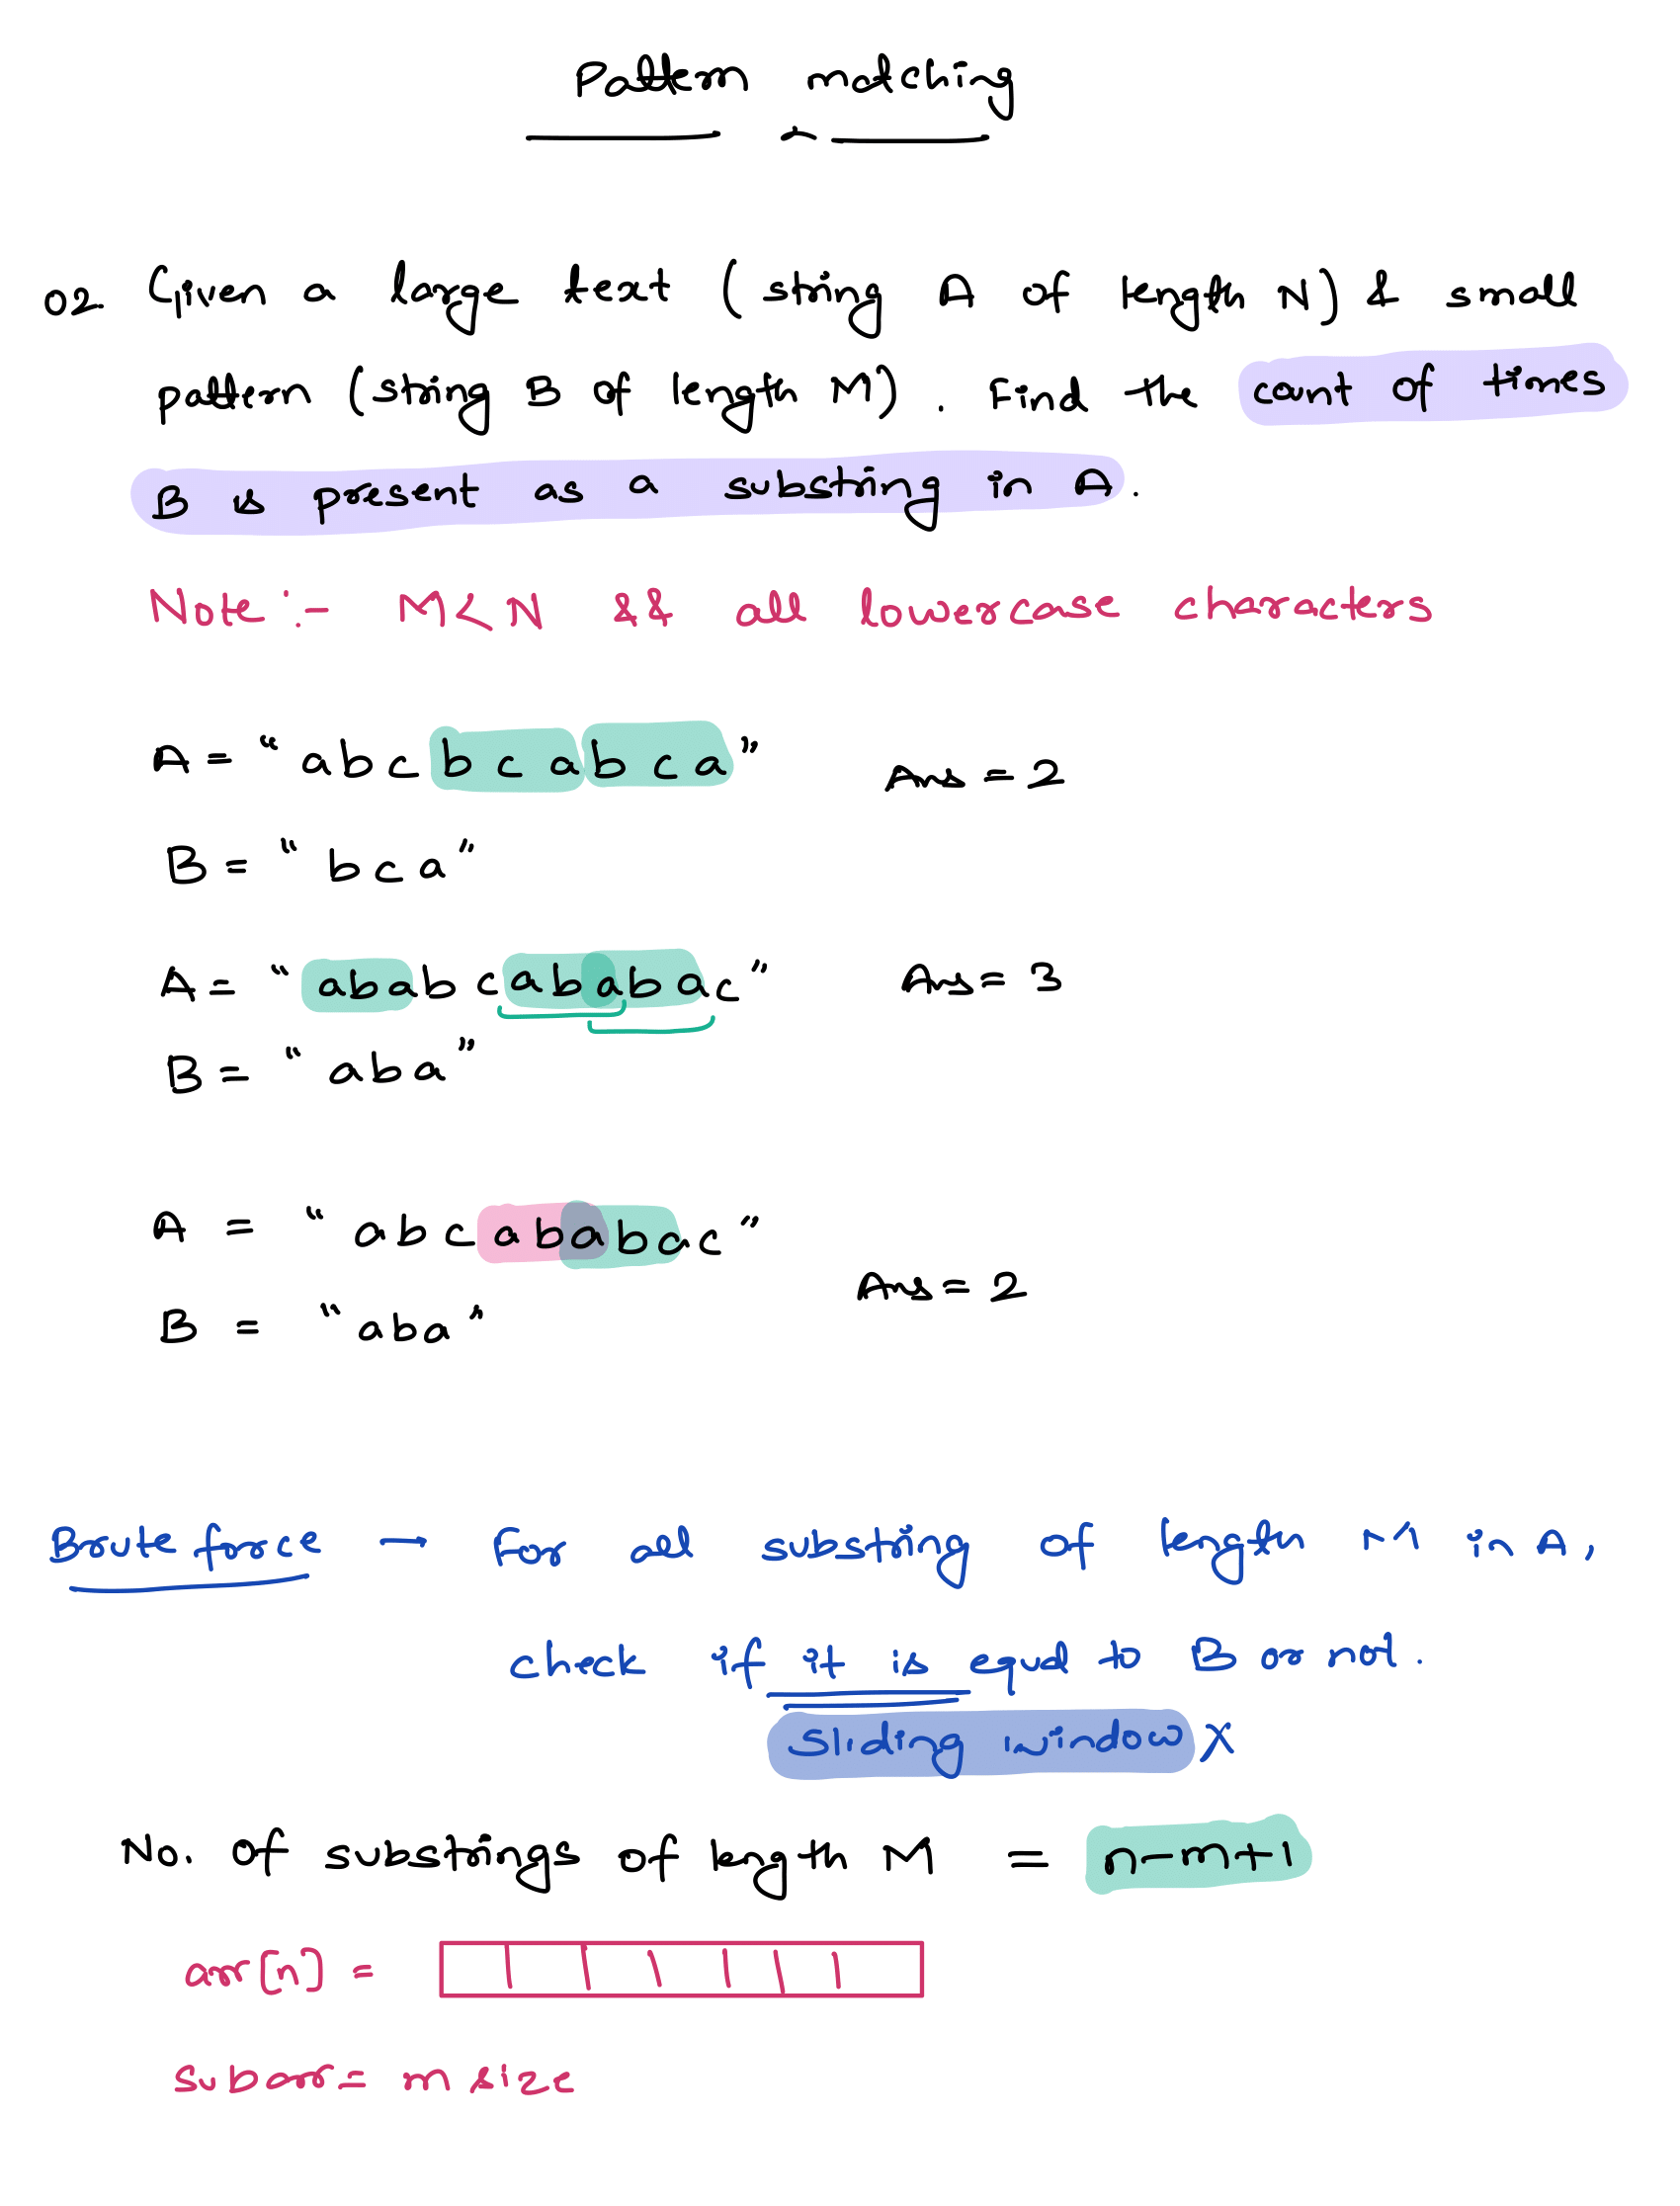 Pattern matching
02. Given a large text (string A of length N) & small
pattern (string B of length M). Find the count of times
B is present as a substring in A.
Note :- M<N && all lowercase characters
A = "abcbcabca" Ans = 2
B = "bca"
A = "ababcababac" Ans = 3
B = "aba"
A = "abcababac"
Ans = 2
B = "aba"
Brute force - For all substring of length M in A,
check if it is equal to B or not.
Sliding window X
No. of substrings of length M = n-m+1
arr[n] =
subarr = m size